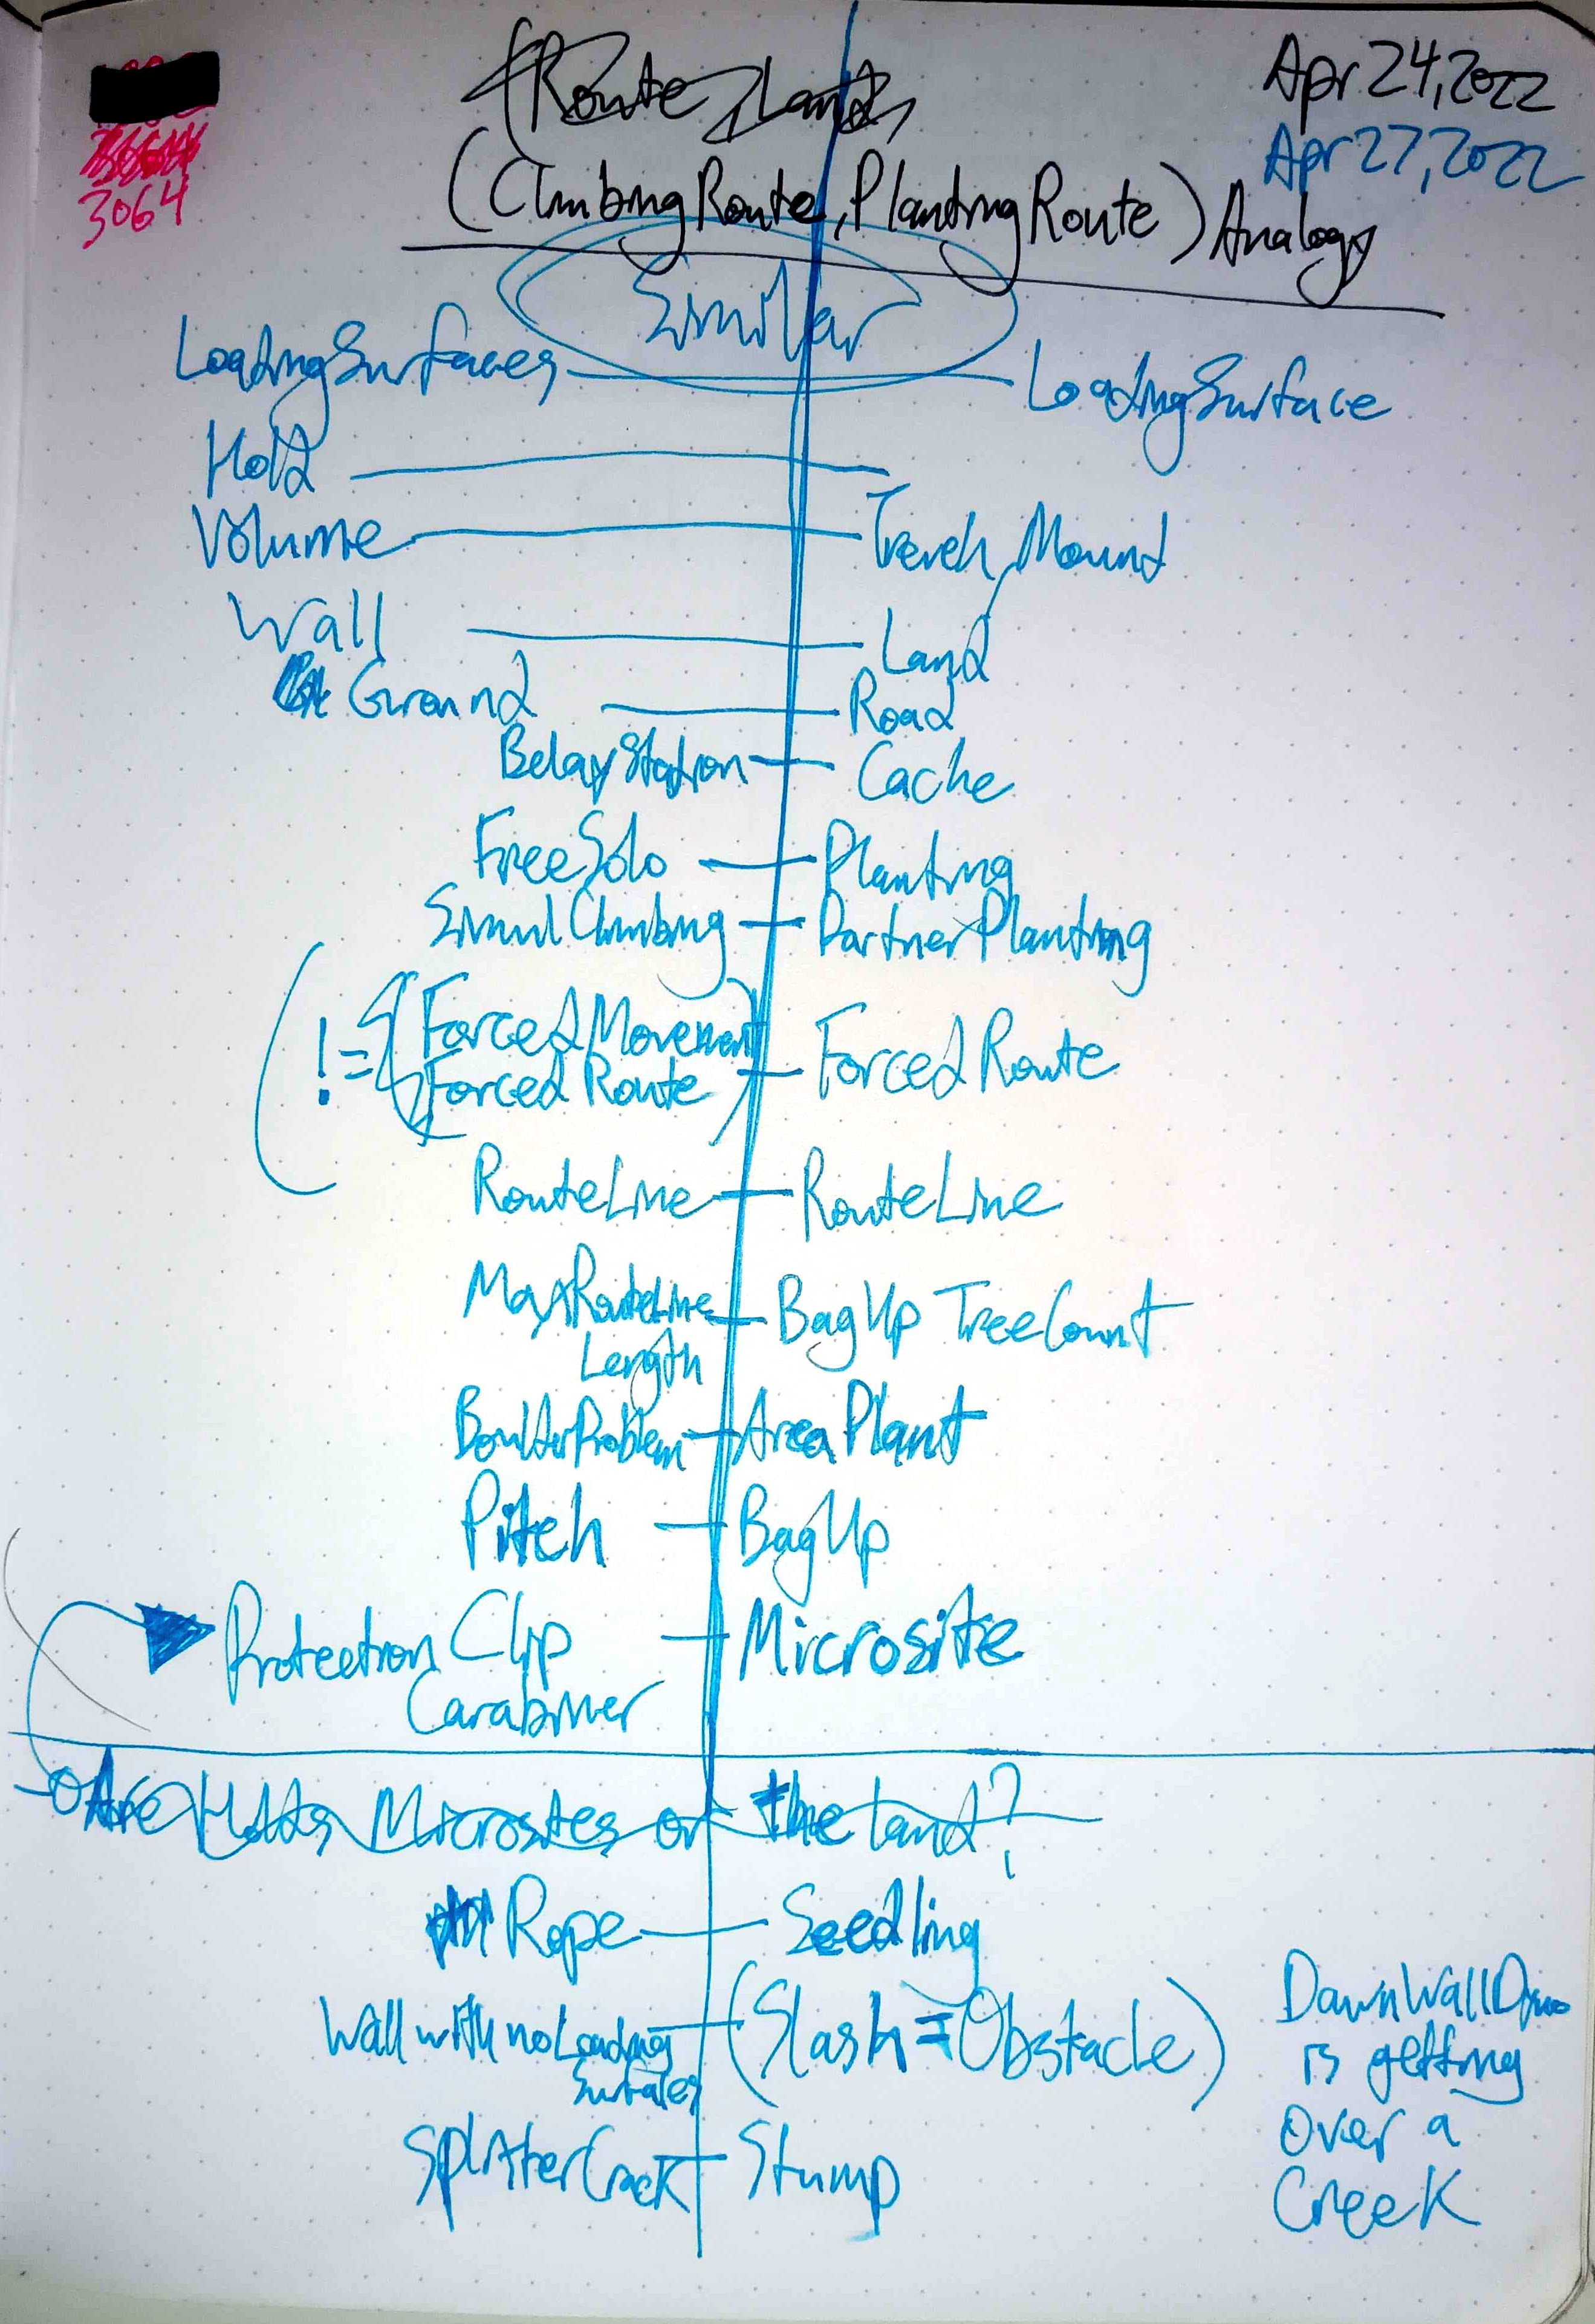 3064
(Route, Land)
Apr 24, 2022
Apr 27, 2022
(ClimbingRoute, PlantingRoute) Analogy
Similar
LoadingSurfaces — LoadingSurface
Hold —
Volume — Trench, Mound
Wall — Land
Ground — Road
BelayStation — Cache
FreeSolo — Planting
SimulClimbing — PartnerPlanting
(!= {ForcedMovement
ForcedRoute) — ForcedRoute
RouteLine — RouteLine
MaxRouteLine — BagUp TreeCount
Length
BoulderProblem — AreaPlant
Pitch — BagUp
Protection, Clip — Microsite
Carabiner
Are Holds, Microsites or the land?
Rope — Seedling
Wall with no Loading — (Slash = Obstacle)
Surfaces
SplitterCrack — Stump
DawnWallDyno
is getting
over a
Creek